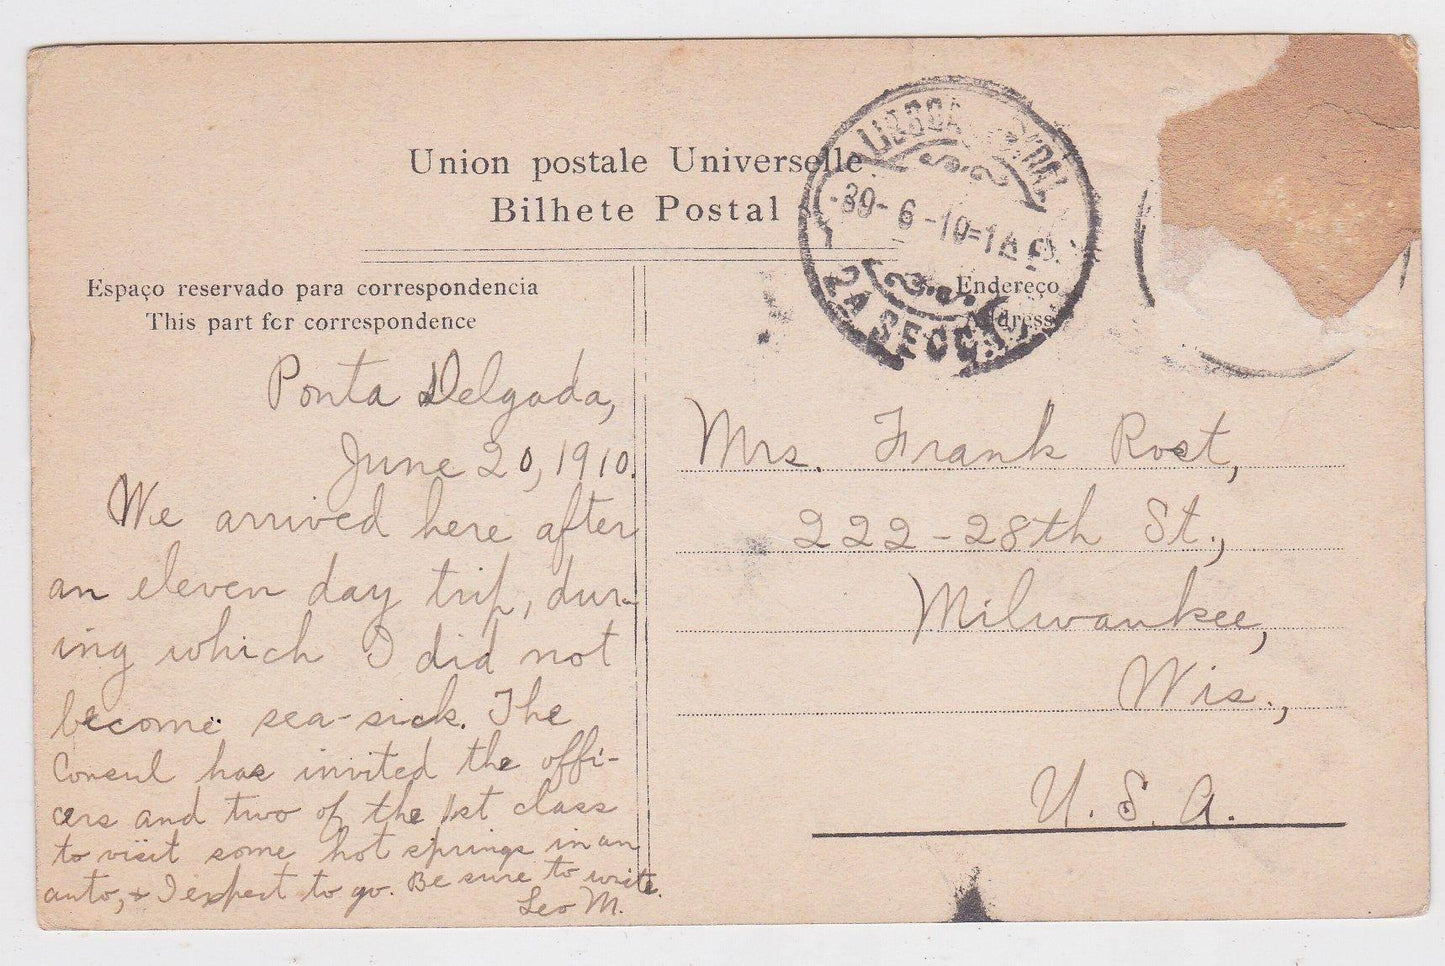 Union postale Universelle
Bilhete Postal
LISBOA CENTRAL
30-6-10=1
2A SECCÃO
Espaço reservado para correspondencia
This part for correspondence
Endereço
Address
Ponta Delgada,
June 20, 1910.
We arrived here after
an eleven day trip, dur-
ing which I did not
become sea-sick. The
Consul has invited the offi-
cers and two of the 1st class
to visit some hot springs in an
auto, & I expect to go. Be sure to write.
Leo M.
Mrs. Frank Rost,
222-28th St.,
Milwaukee,
Wis.,
U. S. A.